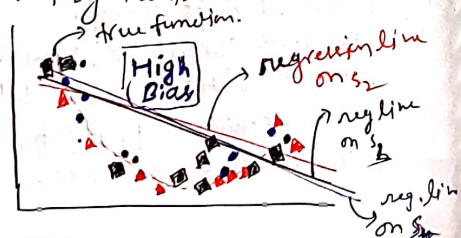 true function.
High
Bias
regression line
on S2
reg line
on S1
reg. line
on